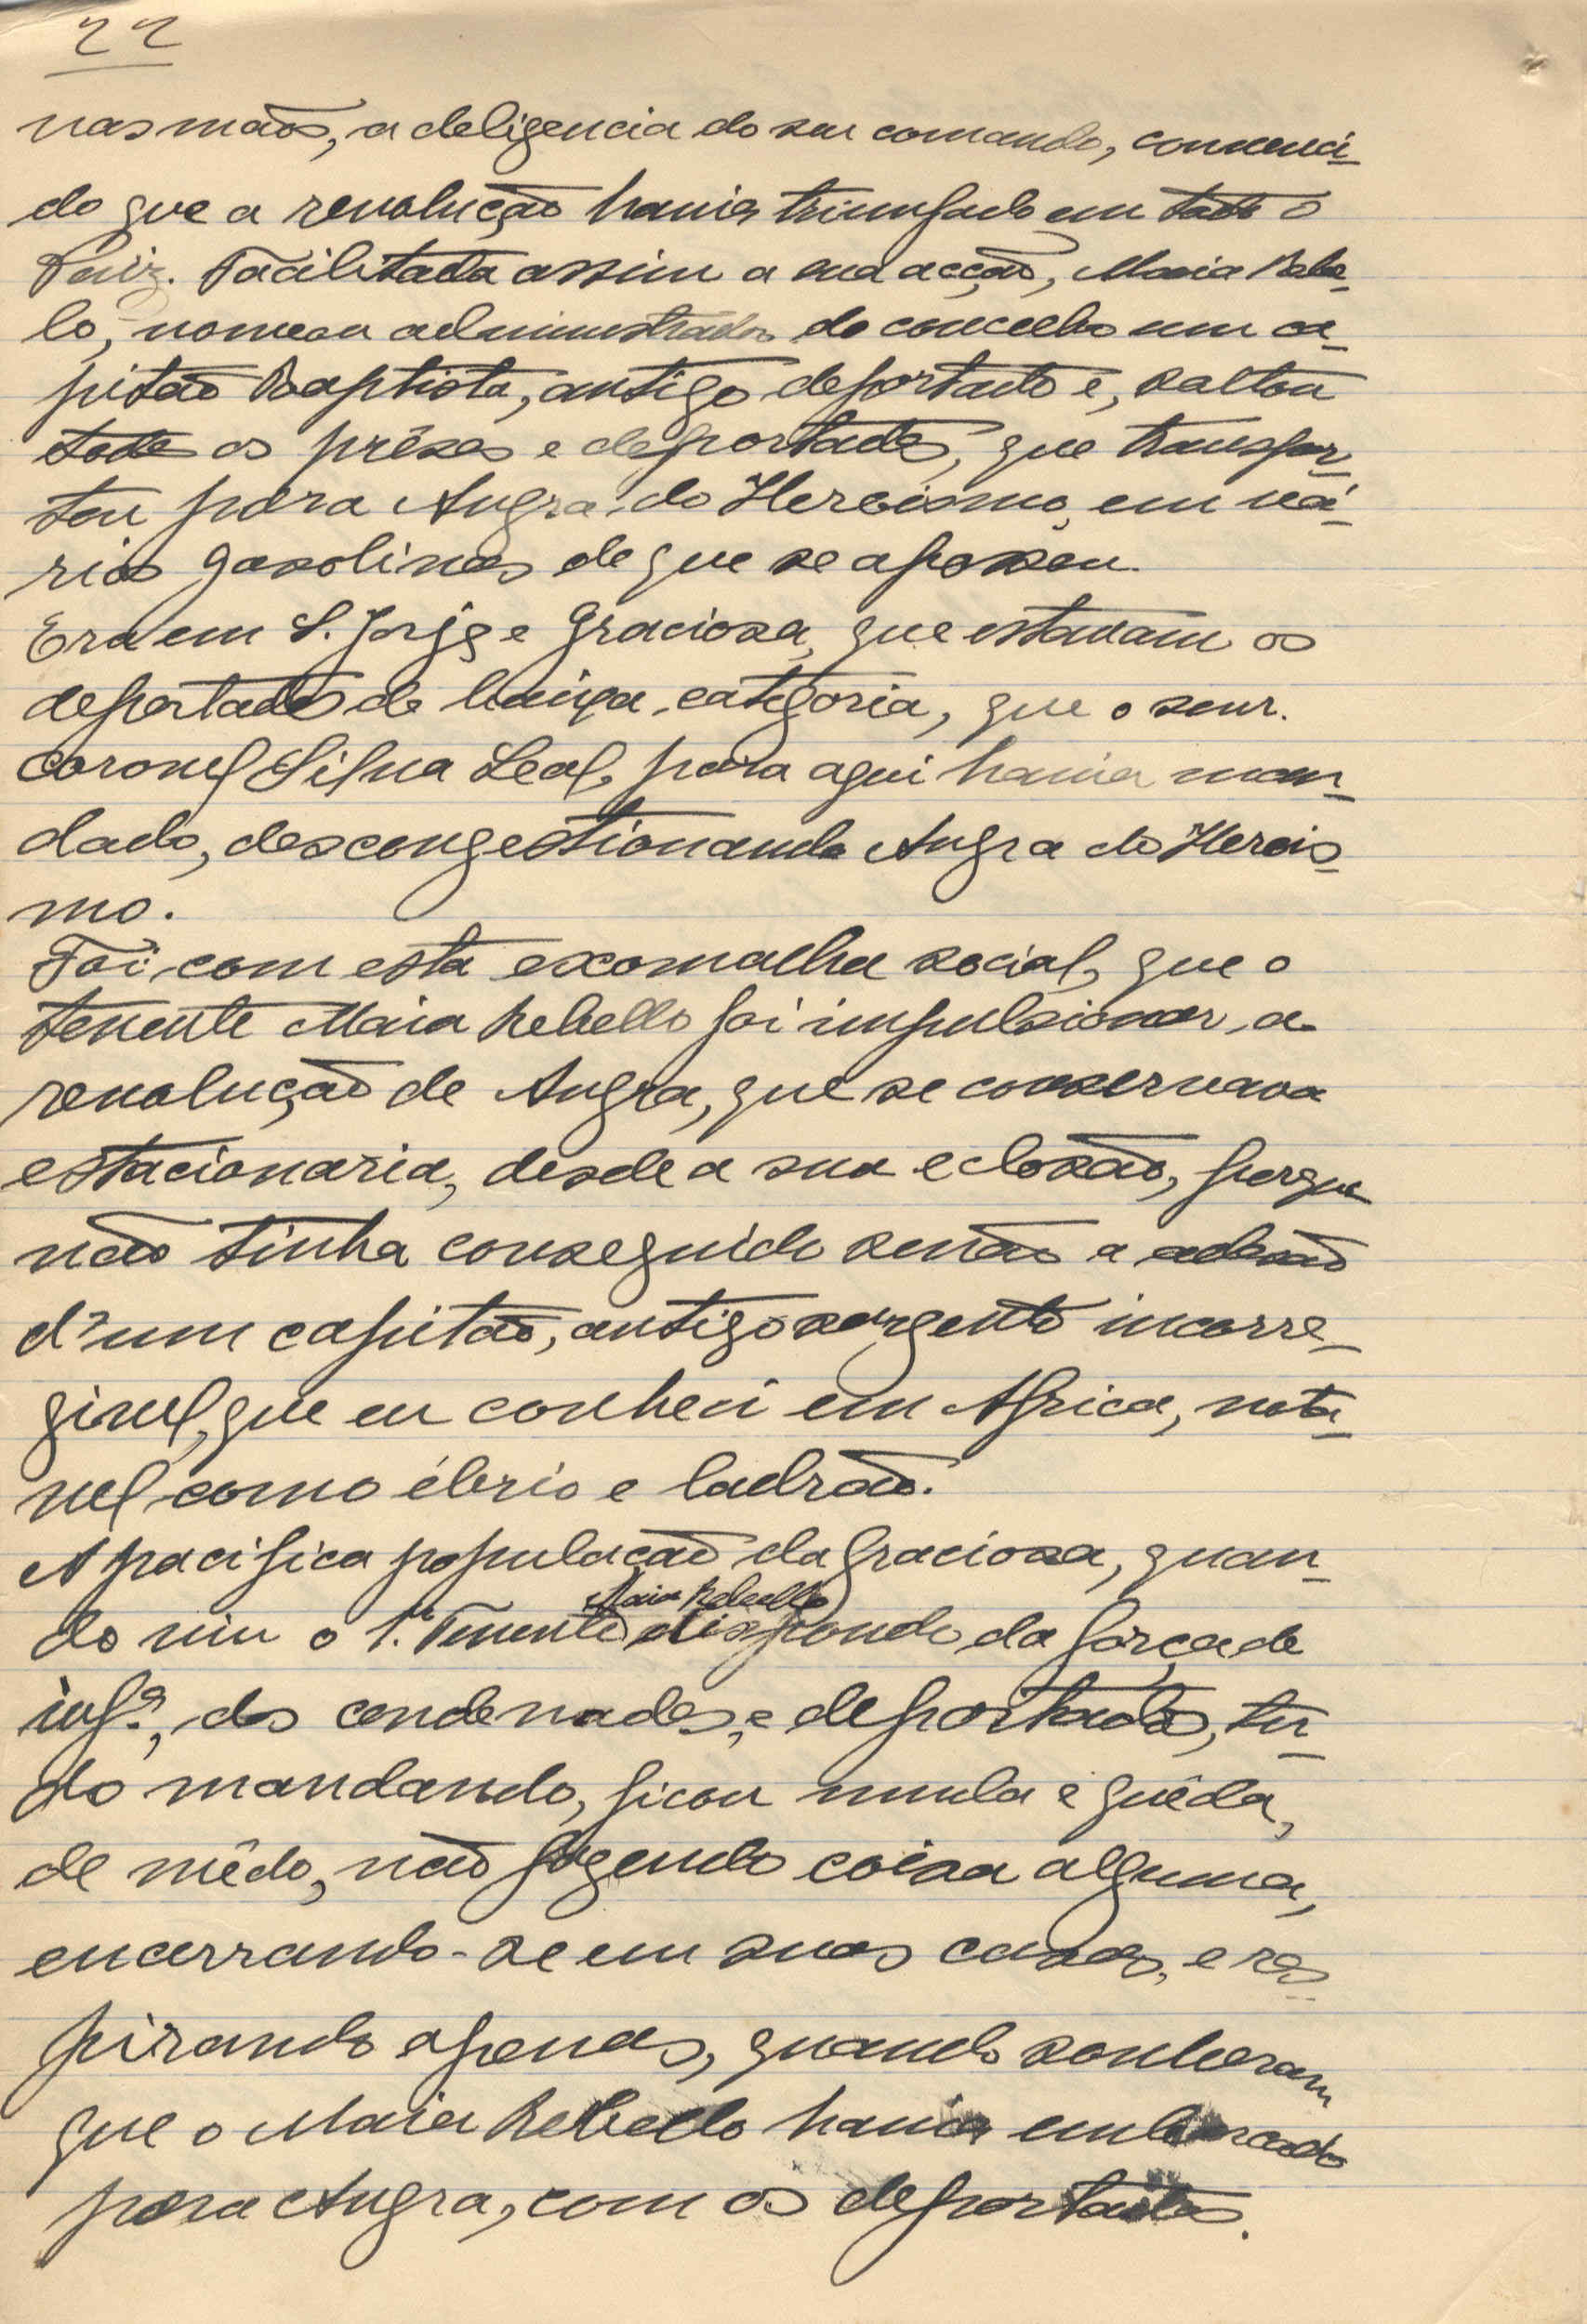 22
nas mãos, a deligencia do seu comando, convenci-
do que a revolução havia triumfado em todo o
Paiz. Facilitada assim a sua acção, Maia Rebe-
lo, nomeou administrador do concelho um ca-
pitão Baptista, antigo deportado e, saltou
todos os prêsos e deportados, que transpor-
tou para Angra do Heroismo, em vá-
rios gasolinas de que se apossou.
Era em S. Jorge e Graciosa, que estavam os
deportados de baixa categoria, que o snr.
coronel Silva Leal, para aqui havia man-
dado, descongestionando Angra do Herois-
mo.
Foi com esta escomalha social, que o
tenente Maia Rebello foi impulsionar, a
revolução de Angra, que se conservava
estacionaria, desde a sua eclosão, porque
não tinha conseguido senão a adesão
d'um capitão, antigo sargento incorre-
givel, que eu conheci em Africa, notá-
vel como ébrio e ladrão.
A pacifica população da Graciosa, quan-
do viu o 1.º Tenente Maia Rebello dispondo da força de
infª., dos condenados, e deportados, tu-
do mandando, ficou muda e quêda,
de mêdo, não fazendo coisa alguma,
encerrando-se em suas casas, e res-
pirando apenas, quando souberam
que o Maia Rebello havia embarcado
para Angra, com os deportados.